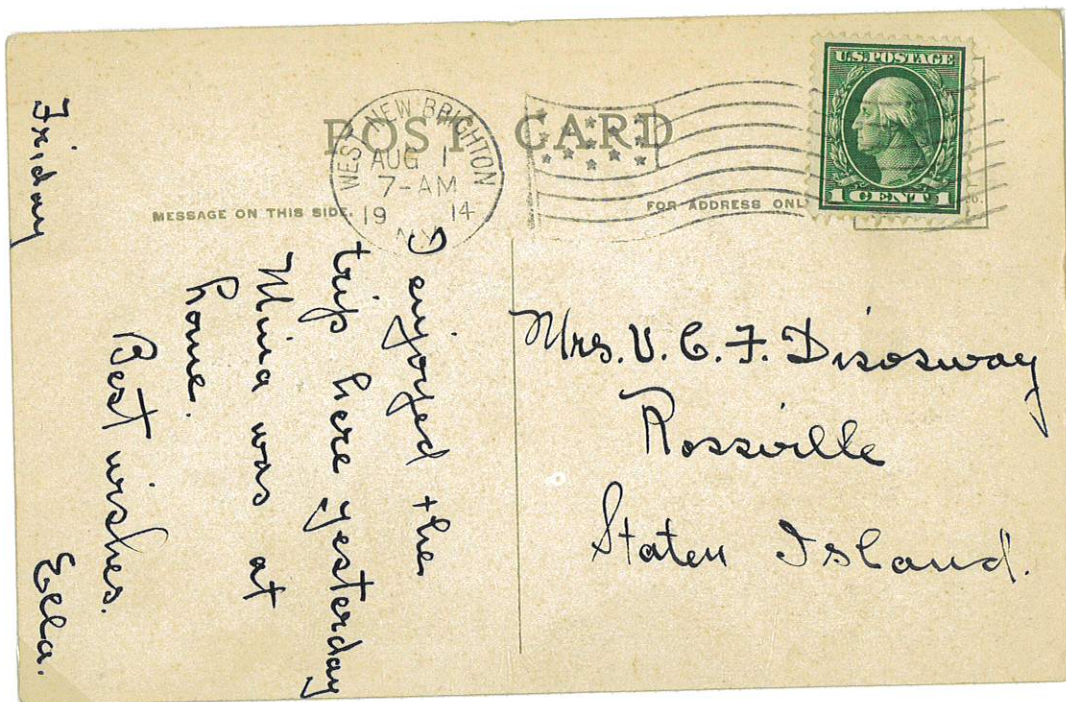 POST CARD
WEST NEW BRIGHTON
AUG 1
7-AM
19 14
N.Y.
U.S. POSTAGE
1 CENT 1
MESSAGE ON THIS SIDE.
FOR ADDRESS ONL
Friday
I enjoyed the
trip here yesterday
Mina was at
home.
Best wishes.
Ella.
Mrs. V. C. F. Disosway
Rossville
Staten Island.